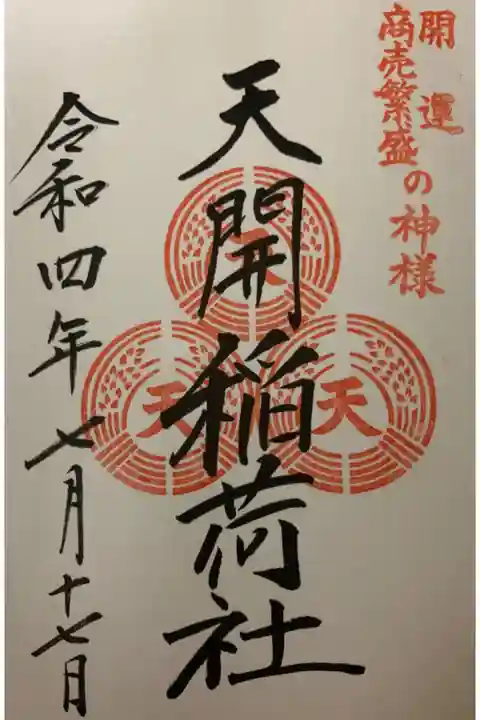 開運
商売繁盛の神様
天
天
天
天開稲荷社
令和四年七月十七日